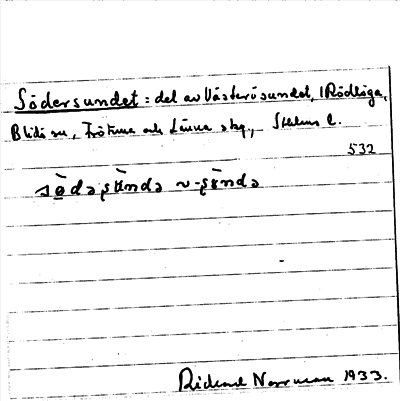 Södersundet: del av Västerösundet, i Rödlöga,
Blidö sn, Frötuna och Länna skg., Sthlms l.
532
sø̀dəʂɯ̀ndə ~ -ʂɯ̀ndə
Rickard Norrman 1933.